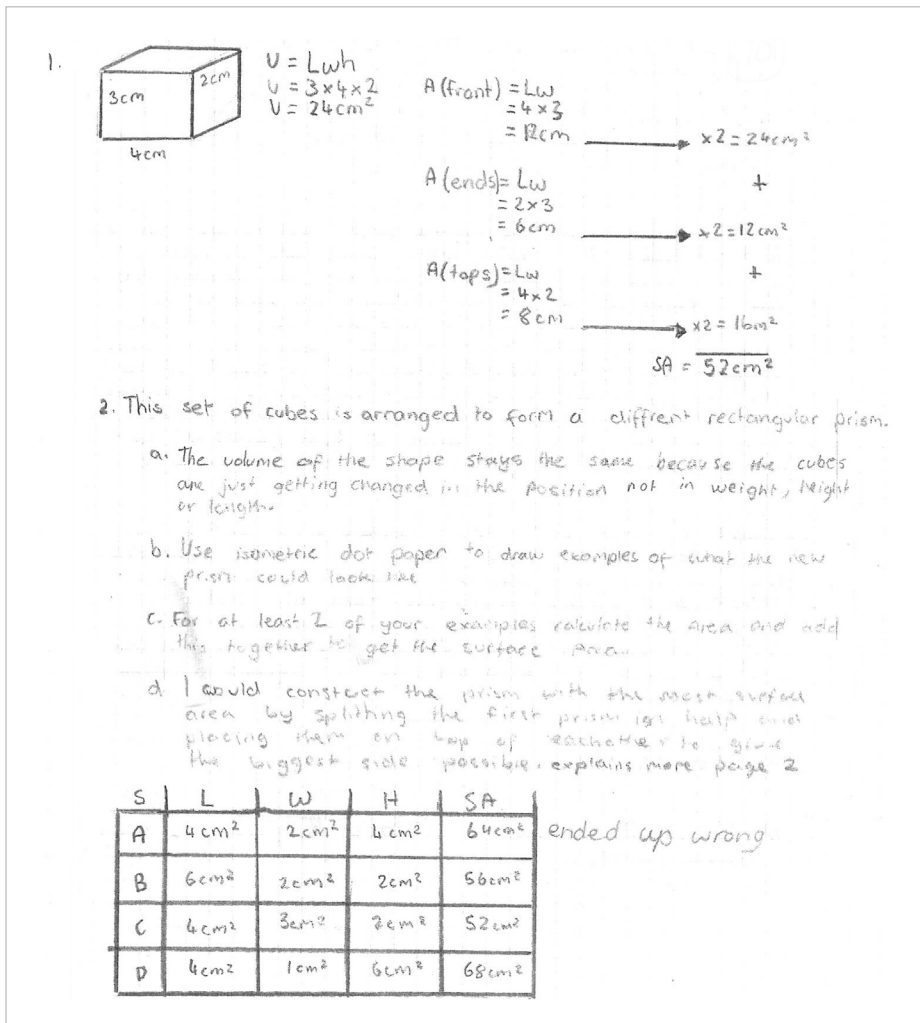 1.
3cm
2cm
4cm
V = Lwh
V = 3×4×2
V = 24cm²
A(front) = Lw
= 4×3
= 12cm → ×2 = 24cm²
+
A(ends)= Lw
= 2×3
= 6cm → ×2=12cm²
+
A(tops)=Lw
= 4×2
= 8cm → ×2 = 16m²
SA = 52cm²
2. This set of cubes is arranged to form a diffrent rectangular prism.
a. The volume of the shape stays the same because the cubes
are just getting changed in the position not in weight, height
or length.
b. Use isometric dot paper to draw examples of what the new
prism could look like
c. For at least 2 of your examples calculate the area and add
this together to get the surface Area.
d. I would constuct the prism with the most surface
area by splitting the first prism in half and
placing them on top of eachother to give
the biggest side possible. explains more page 2
S L W H SA
A 4cm² 2cm² 4cm² 64cm² ended up wrong
B 6cm² 2cm² 2cm² 56cm²
C 4cm² 3cm² 2cm² 52cm²
D 4cm² 1cm² 6cm² 68cm²